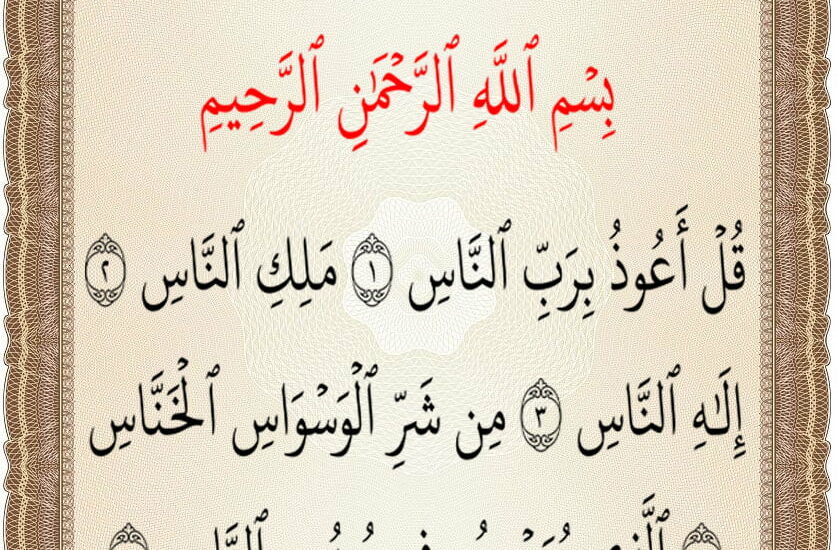 بِسْمِ ٱللَّهِ ٱلرَّحْمَٰنِ ٱلرَّحِيمِ
قُلْ أَعُوذُ بِرَبِّ ٱلنَّاسِ ١ مَلِكِ ٱلنَّاسِ ٢
إِلَٰهِ ٱلنَّاسِ ٣ مِن شَرِّ ٱلْوَسْوَاسِ ٱلْخَنَّاسِ